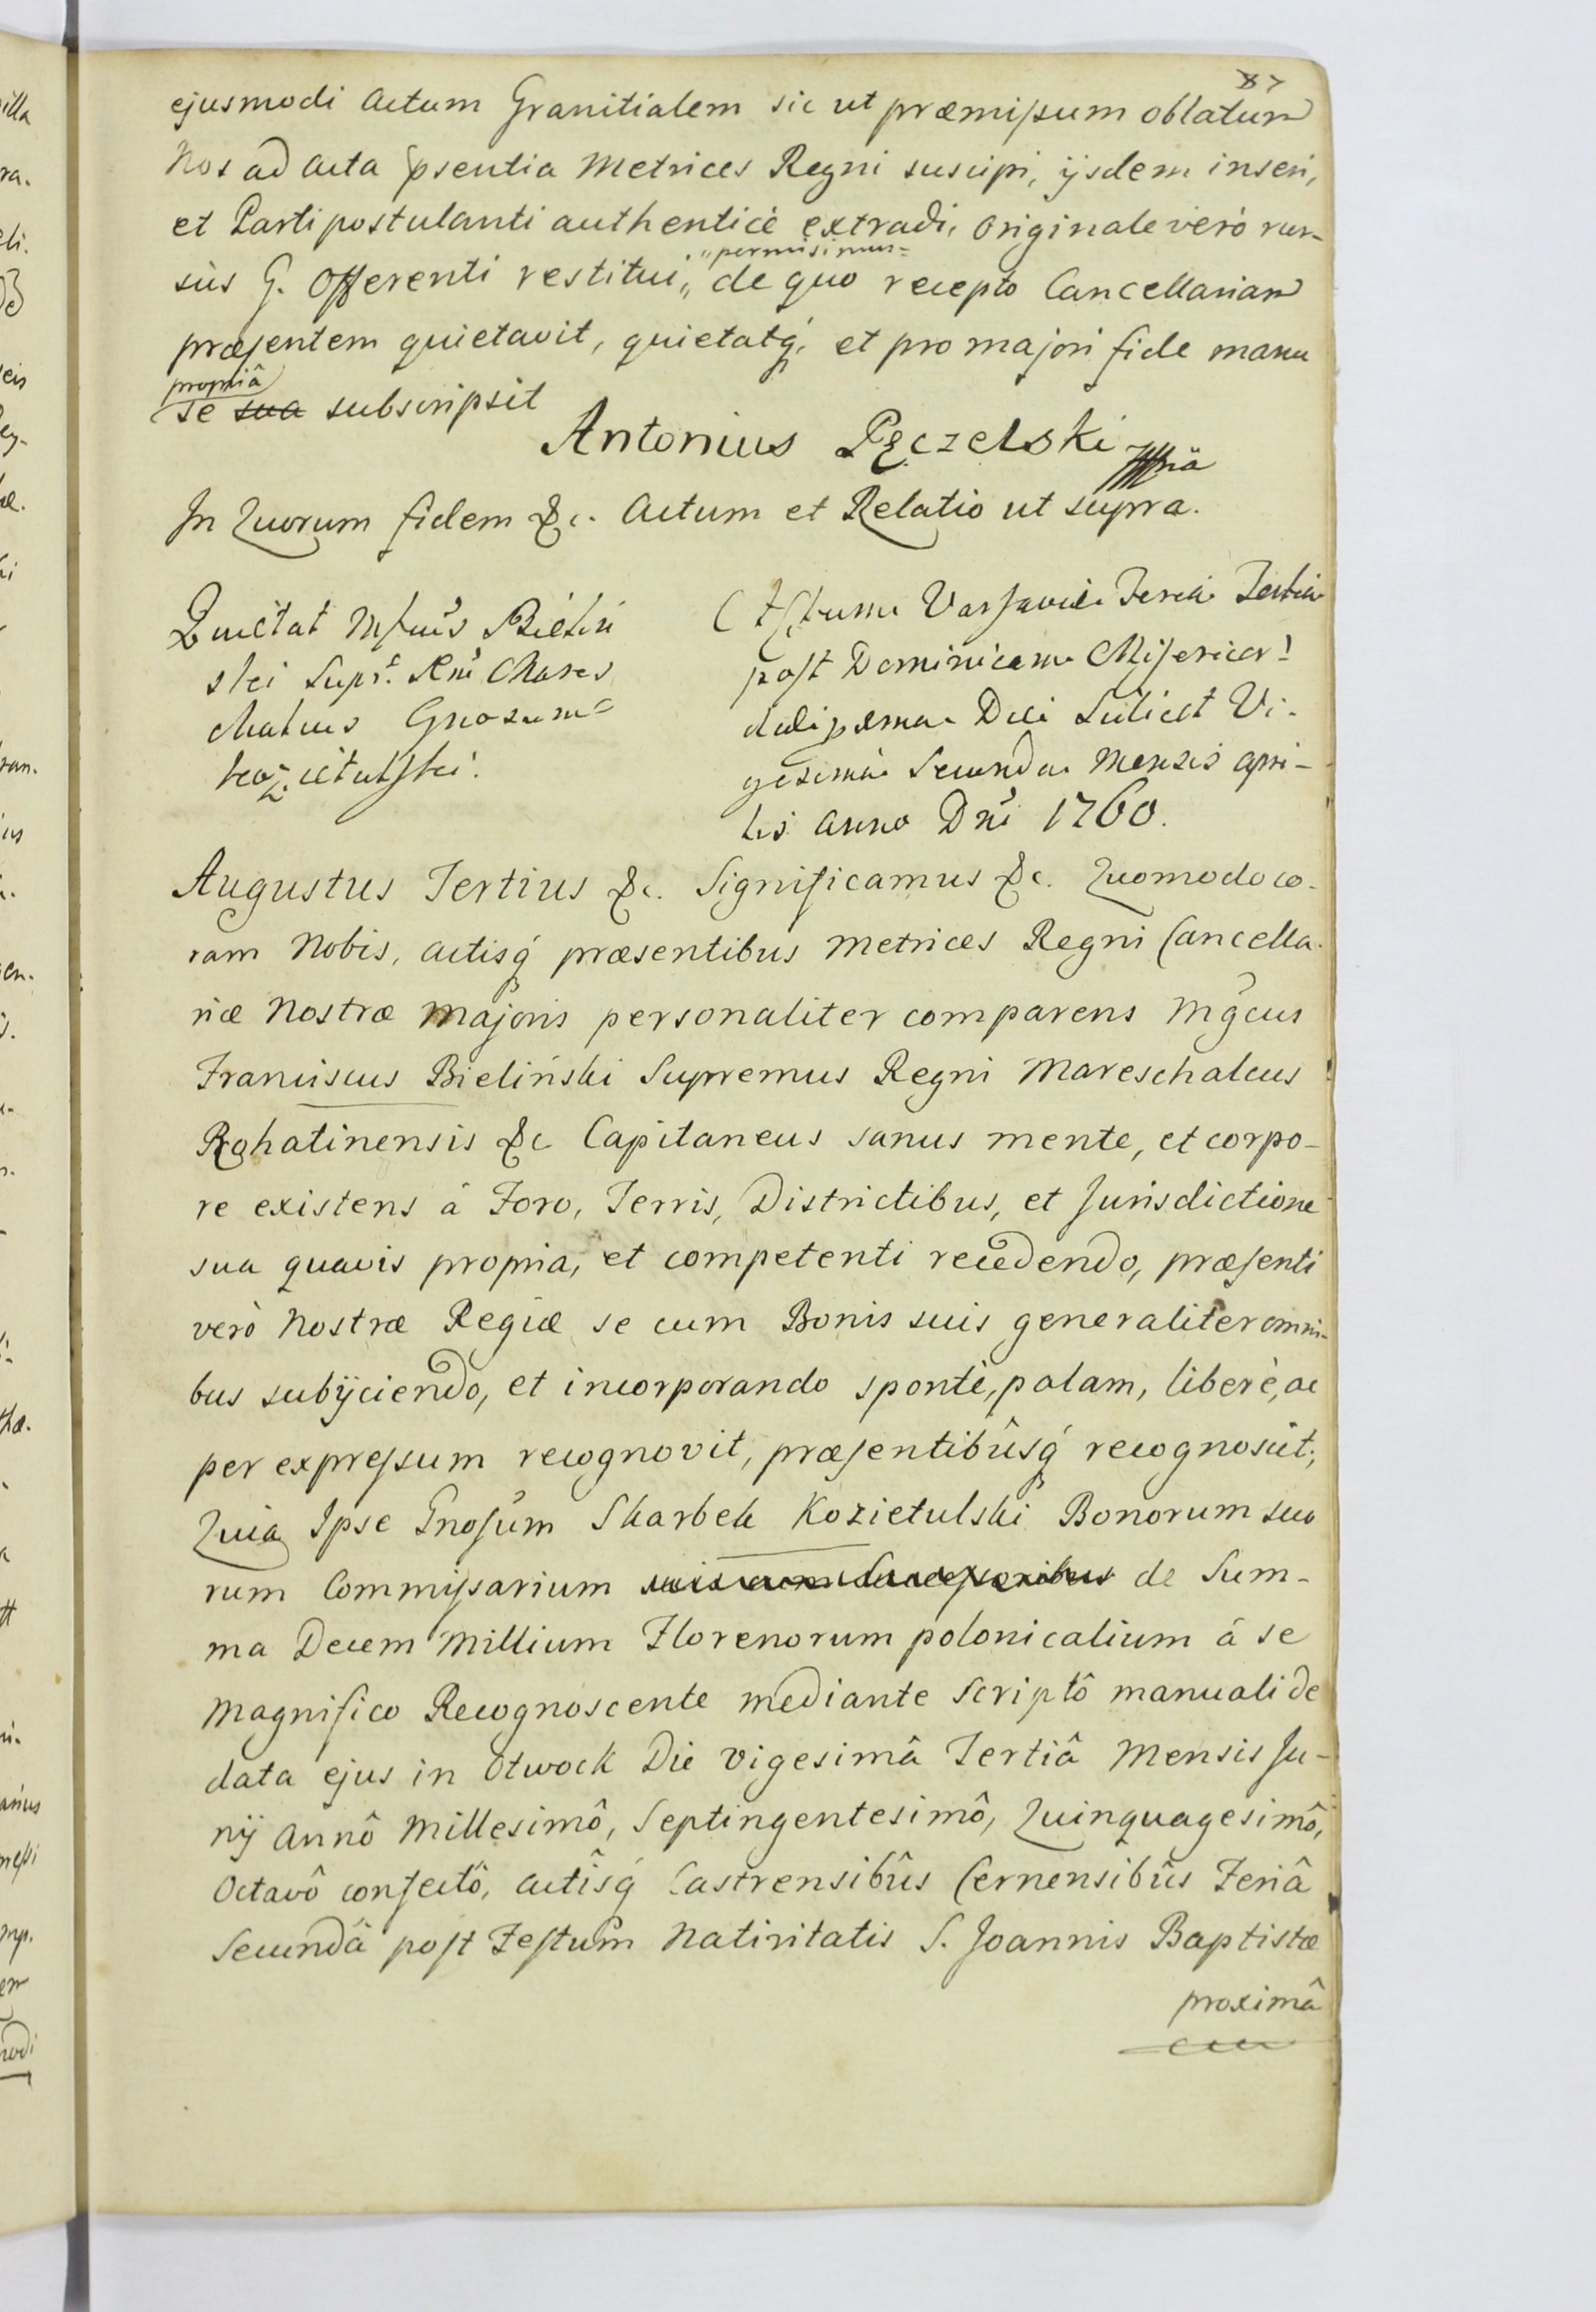 87
ejusmodi Actum Granitialem sic ut præmissum oblatum
Nos ad Acta psentia Metrices Regni suscipi, ijsdem inseri,
et Parti postulanti authenticè extradi, Originale verò rur-
"permisimus=
sùs G. Offerenti restitui,, de quo recepto Cancellariam
præsentem quietavit, quietatq, et pro majori fide manu
propriâ
se sua subscripsit
Antonius Pęczelski mpria
In Quorum fidem &c. Actum et Relatio ut supra.
Quietat Mfcus Bieliń
ski Supr. Rni Mares
chalcus Gnosum
Kozietulski.
Actum Varsaviæ Feria Tertia
post Dominicam Misericor:
dali pxma Die Scilicet Vi-
gesima Secunda Mensis Apri-
lis Anno Dni 1760.
Augustus Tertius &c. Significamus &c. Quomodo co-
ram Nobis, Actisq præsentibus Metrices Regni Cancella-
riæ Nostræ Majoris personaliter comparens Mgcus
Franciscus Bieliński Supremus Regni Mareschalcus
Rohatinensis &c Capitaneus sanus mente, et corpo-
re existens à Foro, Terris, Districtibus, et Jurisdictione
sua quavis propria, et competenti recedendo, præsenti
verò Nostræ Regiæ se cum Bonis suis generaliter omni-
bus subijciendo, et incorporando spontè, palam, liberè, ac
per expressum recognovit, præsentibûsq recognoscit;
Quia Ipse Gnosum Skarbek Kozietulski Bonorum suo
rum Commissarium suis cum Successoribus de Sum-
ma Decem Millium Florenorum polonicalium à se
Magnifico Recognoscente mediante Scriptô manuali de
data ejus in Otwock Die Vigesimâ Tertiâ Mensis Ju-
nij Annô Millesimô, Septingentesimô, Quinquagesimô,
Octavô confectô, Actîsq Castrensibûs Cernensibûs Feriâ
Secundâ post Festum Nativitatis S. Joannis Baptistæ
proximâ